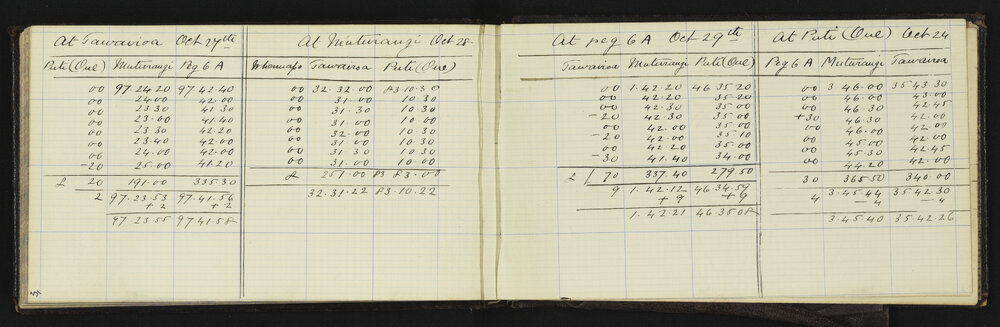 At Tawairoa Oct 27th
Puti (One) Muturangi Peg 6 A
00 97.24.20 97.42.40
00 24.00 42.00
00 23.30 41.30
00 23.00 41.40
00 23.30 42.20
00 23.40 42.00
00 24.00 42.00
-20 25.00 41.20
8 20 191.00 335.30
2 97.23.53 97.41.56
+2 +2
97.23.55 97.41.58
At Muturangi Oct 28
Tawairoa Puti (One)
00 32.32.00 83.10.30
00 31.00 10.30
00 31.30 10.30
00 31.00 10.00
00 32.00 10.30
00 31.00 10.30
00 31.30 10.30
00 31.00 10.00
8 251.00 83.00
32.31.22 83.10.22
At peg 6 A Oct 29th
Tawairoa Muturangi Puti (One)
00 1.42.20 46.35.20
00 42.20 35.20
00 42.30 35.00
-20 42.30 35.00
00 42.00 35.00
-20 42.00 35.10
00 42.20 35.00
-30 41.40 34.00
8 70 337.40 279.50
9 1.42.12 46.34.59
+9 +9
1.42.21 46.35.08
At Puti (One) Oct 24
Peg 6 A Muturangi Tawairoa
00 3.46.00 35.43.30
00 46.00 43.00
00 46.30 42.45
+30 46.30 42.00
00 46.00 42.00
00 45.00 42.00
00 45.30 42.45
00 44.20 42.00
30 365.50 340.00
4 3.45.44 35.42.30
-4 -4
3.45.40 35.42.26